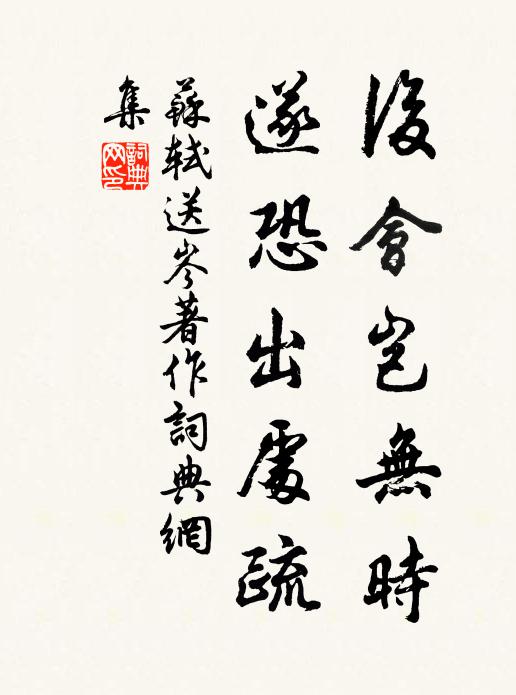 後會豈無時
遂恐出處疏
蘇軾送岑著作詞典網
集
詞典網印